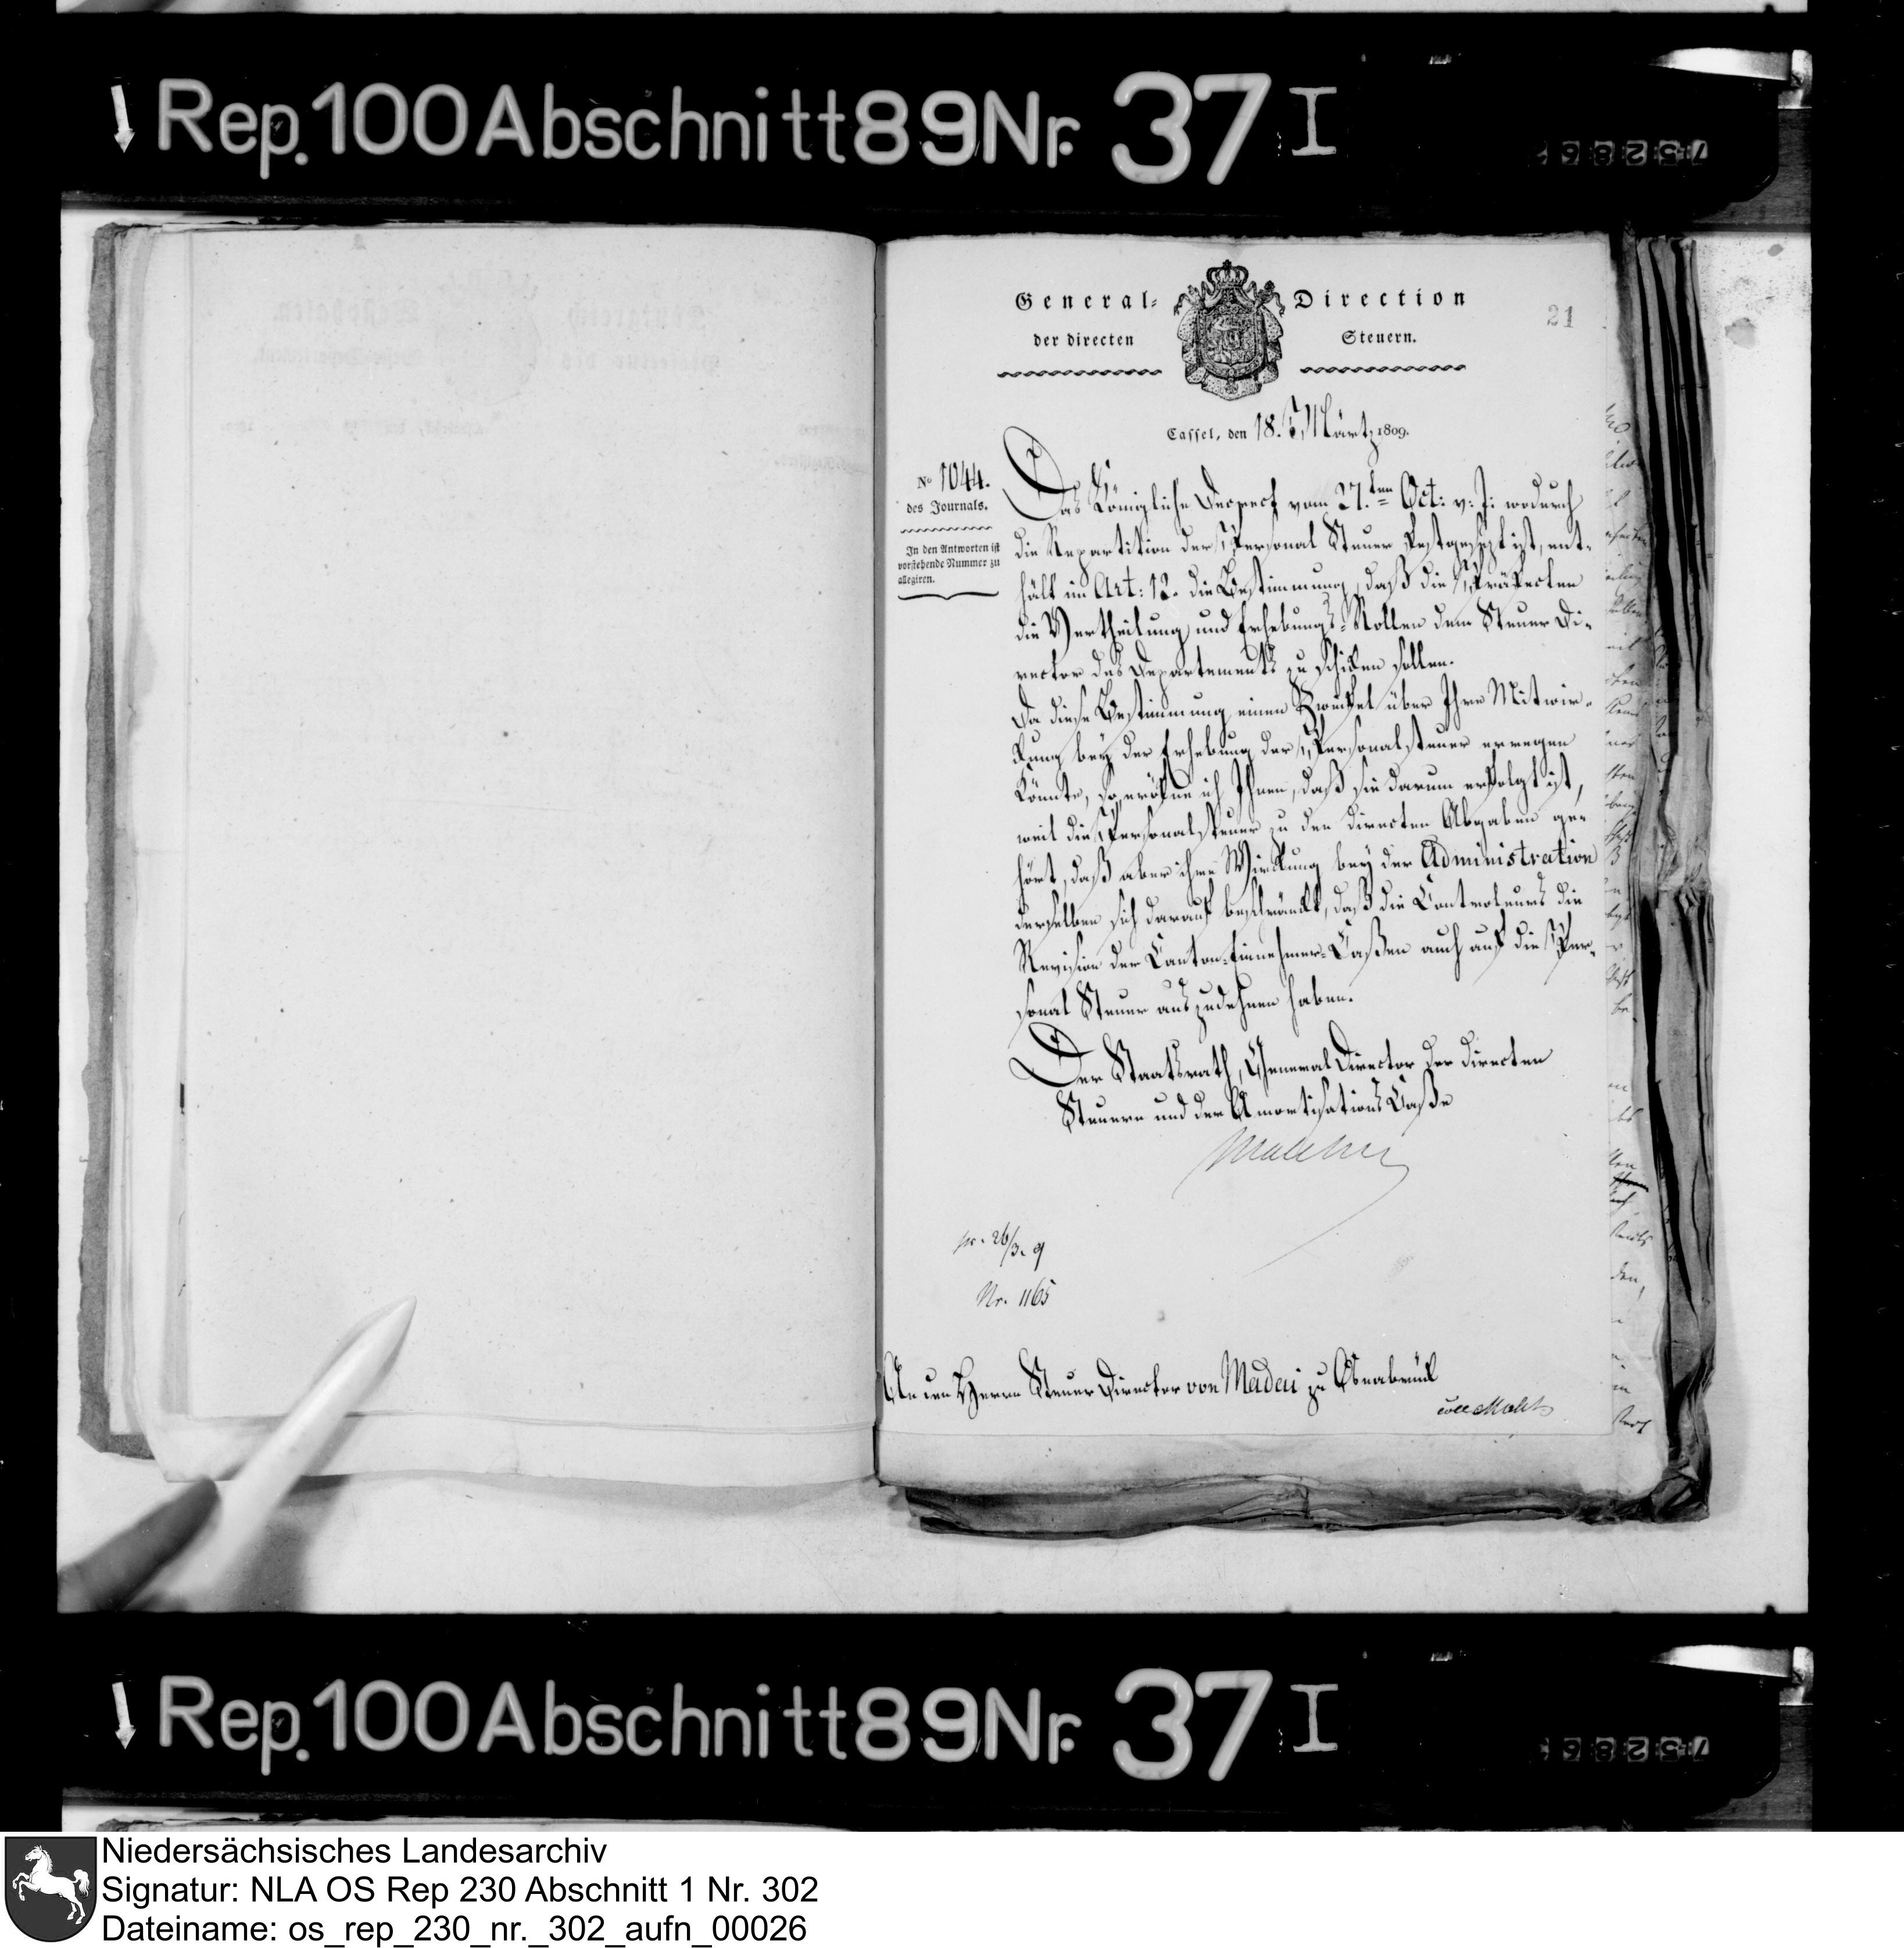 Rep. 100 Abschnitt 89 Nr. 37 I
General- Direction
der directen Steuern.
21
Cassel, den 18. t. Märtz 1809.
No 1044.
des Journals.
In den Antworten ist
vorstehende Nummer zu
allegiren.
Das Königliche Decret vom 27.ten Oct: v: J: wodurch
die Repartition der Personal Steuer festgesetzt ist, ent-
hält im Art: 12. die Bestimmung, daß die Präfecten
die Vertheilung und Erhebungs-Rollen dem Steuer Di-
rector des Departements zu schicken sollen.
Da diese Bestimmung einen Zweifel über Ihre Mitwir-
kung bey der Erhebung der Personalsteuer erregen
könnte, so eröfne ich Ihnen, daß sie darum erfolgt ist,
weil die Personalsteuer zu den directen Abgaben ge-
hört, daß aber ihre Wirkung bey der Administration
derselben sich darauf beschränkt, daß die Controleurs die
Revision der Canton-Einnehmer-Caßen auch auf die Per-
sonal Steuer auszudehnen haben.
Der Staatsrath, General Director der directen
Steuern und der Amortisations Caße
Malchus
pr. 26/3. 9
Nr. 1165
An den Herrn Steuer Director von Madai zu Osnabrück
Rep. 100 Abschnitt 89 Nr. 37 I
Niedersächsisches Landesarchiv
Signatur: NLA OS Rep 230 Abschnitt 1 Nr. 302
Dateiname: os_rep_230_nr._302_aufn_00026